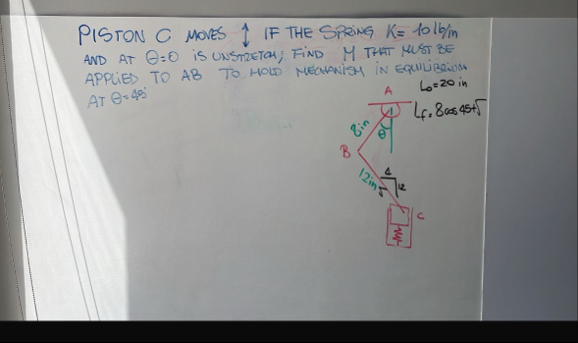 PISTON C MOVES ↕ IF THE SPRING K= 10 lb/in
AND AT θ=0 IS UNSTRETCH, FIND M THAT MUST BE
APPLIED TO AB TO HOLD MECHANISM IN EQUILIBRIUM
AT θ=45°
L₀=20 in
A
Lf=8cos45+√
8in
θ
B
12in
12
C